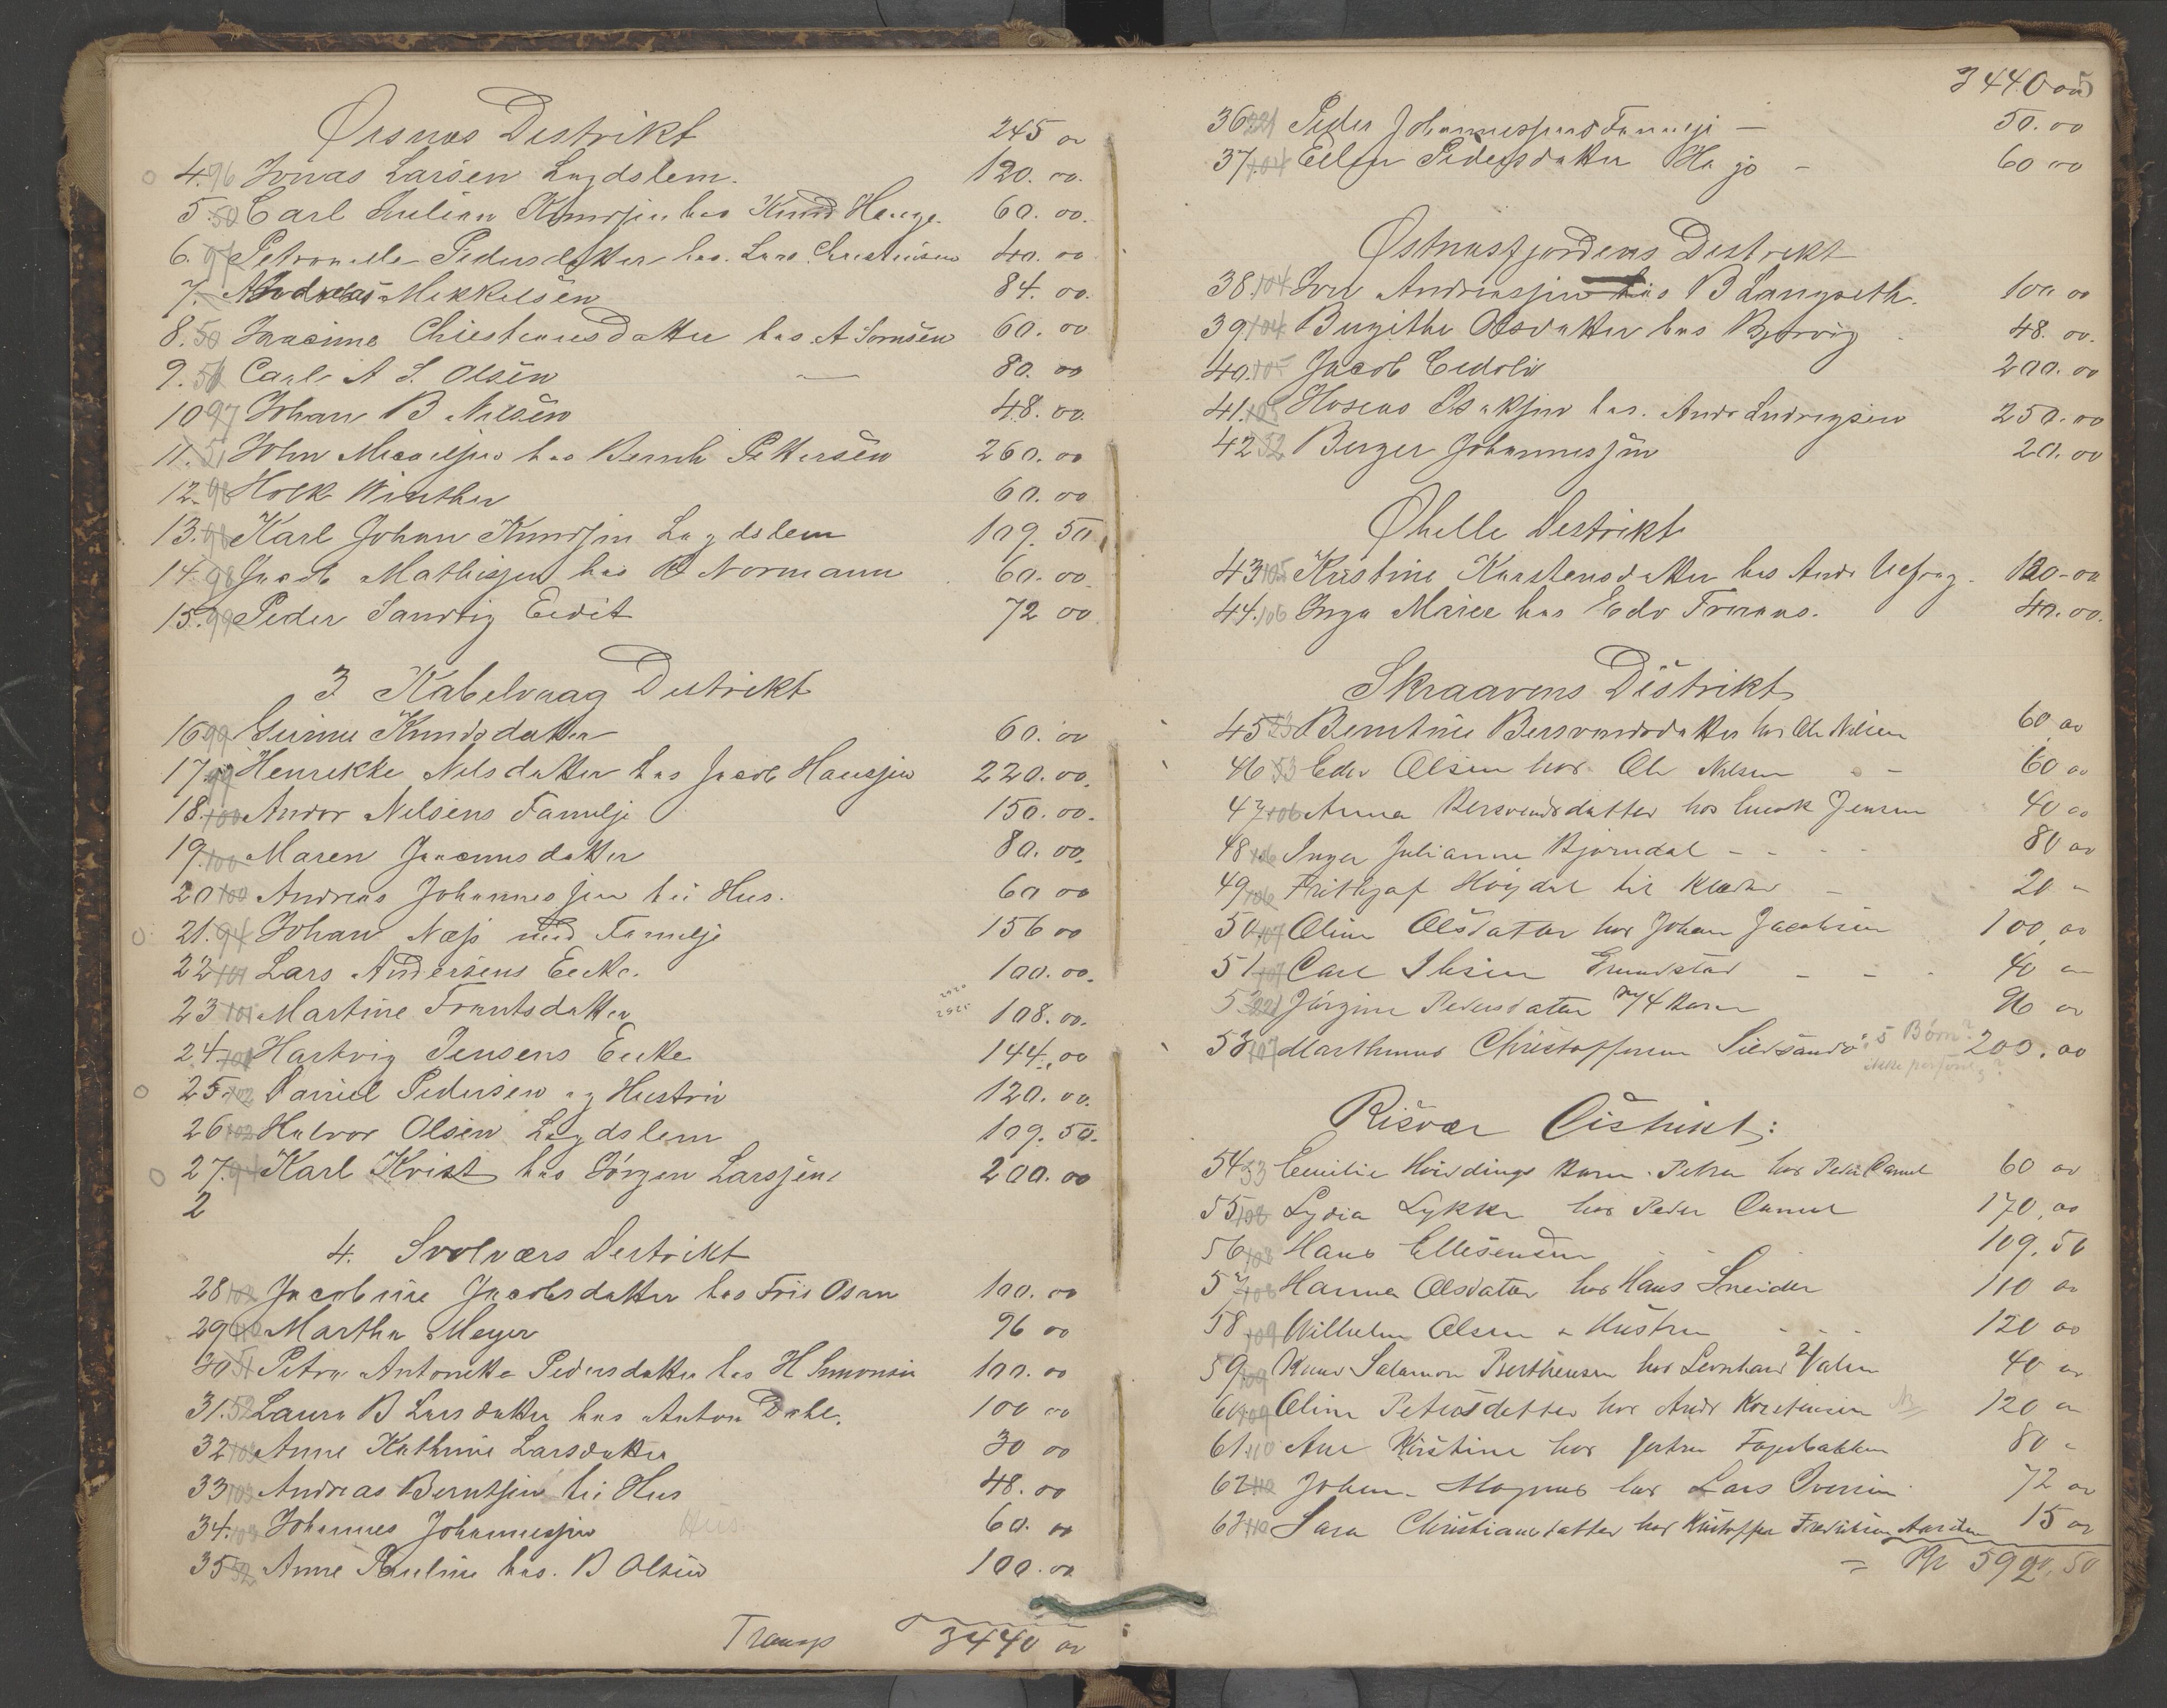 Ørsnæs Distrikt 245 00
4. 96 Jonas Larsen Lægdslem. 120. 00.
5. 50 Carl Julian Knudsen hos Knud Hauge 60. 00.
6. 97 Petronelle Pedersdatter hos. Lars Christensen 40. 00
7. Andreas Mikkelsen 84. 00.
8. 50 Christensdatter hos A 60. 00
9. 51 Carl A S. Olsen — 80. 00
10 97 Johan B Nilsen 48. 00.
11. 51 John hos Bernh Pettersen 260. 00
12. 98 Holk Winther 60. 00
13. 98 Karl Johan Knudsen Lægdslem 109. 50
14. 98 Jacob Mathisen hos R Normann 60. 00.
15. 99 Peder Eidit 72 00
3 Kabelvaag Distrikt
16 99 Knudsdatter 60. 00
17 99 Henrikke Nilsdatter hos Jacob Hansen 220. 00.
18. 100 Andor Nilsens Familje 150. 00.
19. 100 Maren datter 80. 00.
20 100 Andreas Johannessen til Hus. 60 00
21. 94 Johan Næss med Familje 156 00
22 101 Lars Andersens Enke. 100. 00.
23 101 Martine Frantsdatter 108. 00.
24. 101 Hartvig Jensens Enke 144. 00
25. 102 Daniel Pedersen og Hustru 120. 00.
26 102 Halvor Olsen Lægdslem 109. 50.
27. 94 Karl Kvist hos Jörgen Larssen 200. 00
2
4. Svolværs Distrikt
28 102 Jacobine Jacobsdatter hos Friis Osan 100. 00
29 Martha Meyer 96 00
30 51 Petra Antonette Pedersdatter hos H Simonsen 100. 00
31. 52 Laura B Larsdatter hos Anton Dahl. 100 00
32 103 Anne Kathrine Larsdatter 30 00
33 103 Andreas Berntsen til Hus 48. 00
34. 103 Johannes Johannessen Hus 60. 00
35 52 Anne Pauline hos. B Olsen 100. 00
Transp 3440 00
3440 00
36 221 Peder Johannessens Familje — 50. 00
37. 104 Ellen Pedersdatter - 60 00
Østnæsfjordens Distrikt
38. 104 Iver Andreassen hos B Langseth. 100 00
39 104 Birgithe Olsdatter hos 48. 00.
40. 105 Jacob 200. 00
41. 105 Hoseas Isaksen hos. Andr Ludvigsen 250. 00
42 52 Berger Johannessen 20. 00
Øhelle Distrikt
43 105 Kristine Karstensdatter hos Andr 120-00
44. 106 Inga Marie hos Edv 40. 00.
Skraavens Distrikt
45 53 Berntine hos Ole Nilsen 60 00
46 53 Edev Olsen hos Ole Nilsen - 60 00
47 106 Anna Bersvendsdatter hos Jensen 40 00
48 106 Inger Julianne Björndal - - - - 80 00
49 106 Frithjof Höydal til Klæder - 20 -
50 107 Oline Olsdatter hos Johan Jacobsen 100, 00
51 107 Carl Ibsen Grundstad - - - 40 00
52 221 Jörgine Pedersdatter 4 Barn 96 00
53 107 Marthinus Christoffersen 5 Børn? 200. 00
Risvær Distrikt:
54 53 Emilie Barn. Petra hos Peder 60 00
55 108 Lydia Lykke hos Peder 170, 00
56 108 Hans Ellesensen - - - 109. 50
57 108 Hanna Olsdatter hos Hans Sneider 110 00
58 109 Wilhelm Olsen & Hustru - - - 120 00
59 109 Knud Salamon Bertheusen hos Leonhard 40 00
60 109 Oline Petersdatter hos Andr Kristensen 120 00
61 110 Ane Kirstine hos 80 -
62 110 Johan Magnus hos Lars Iversen 72 00
63 110 Sara Christiansdatter hos Kristoffer Fredriksen 15 00
= 5920, 50